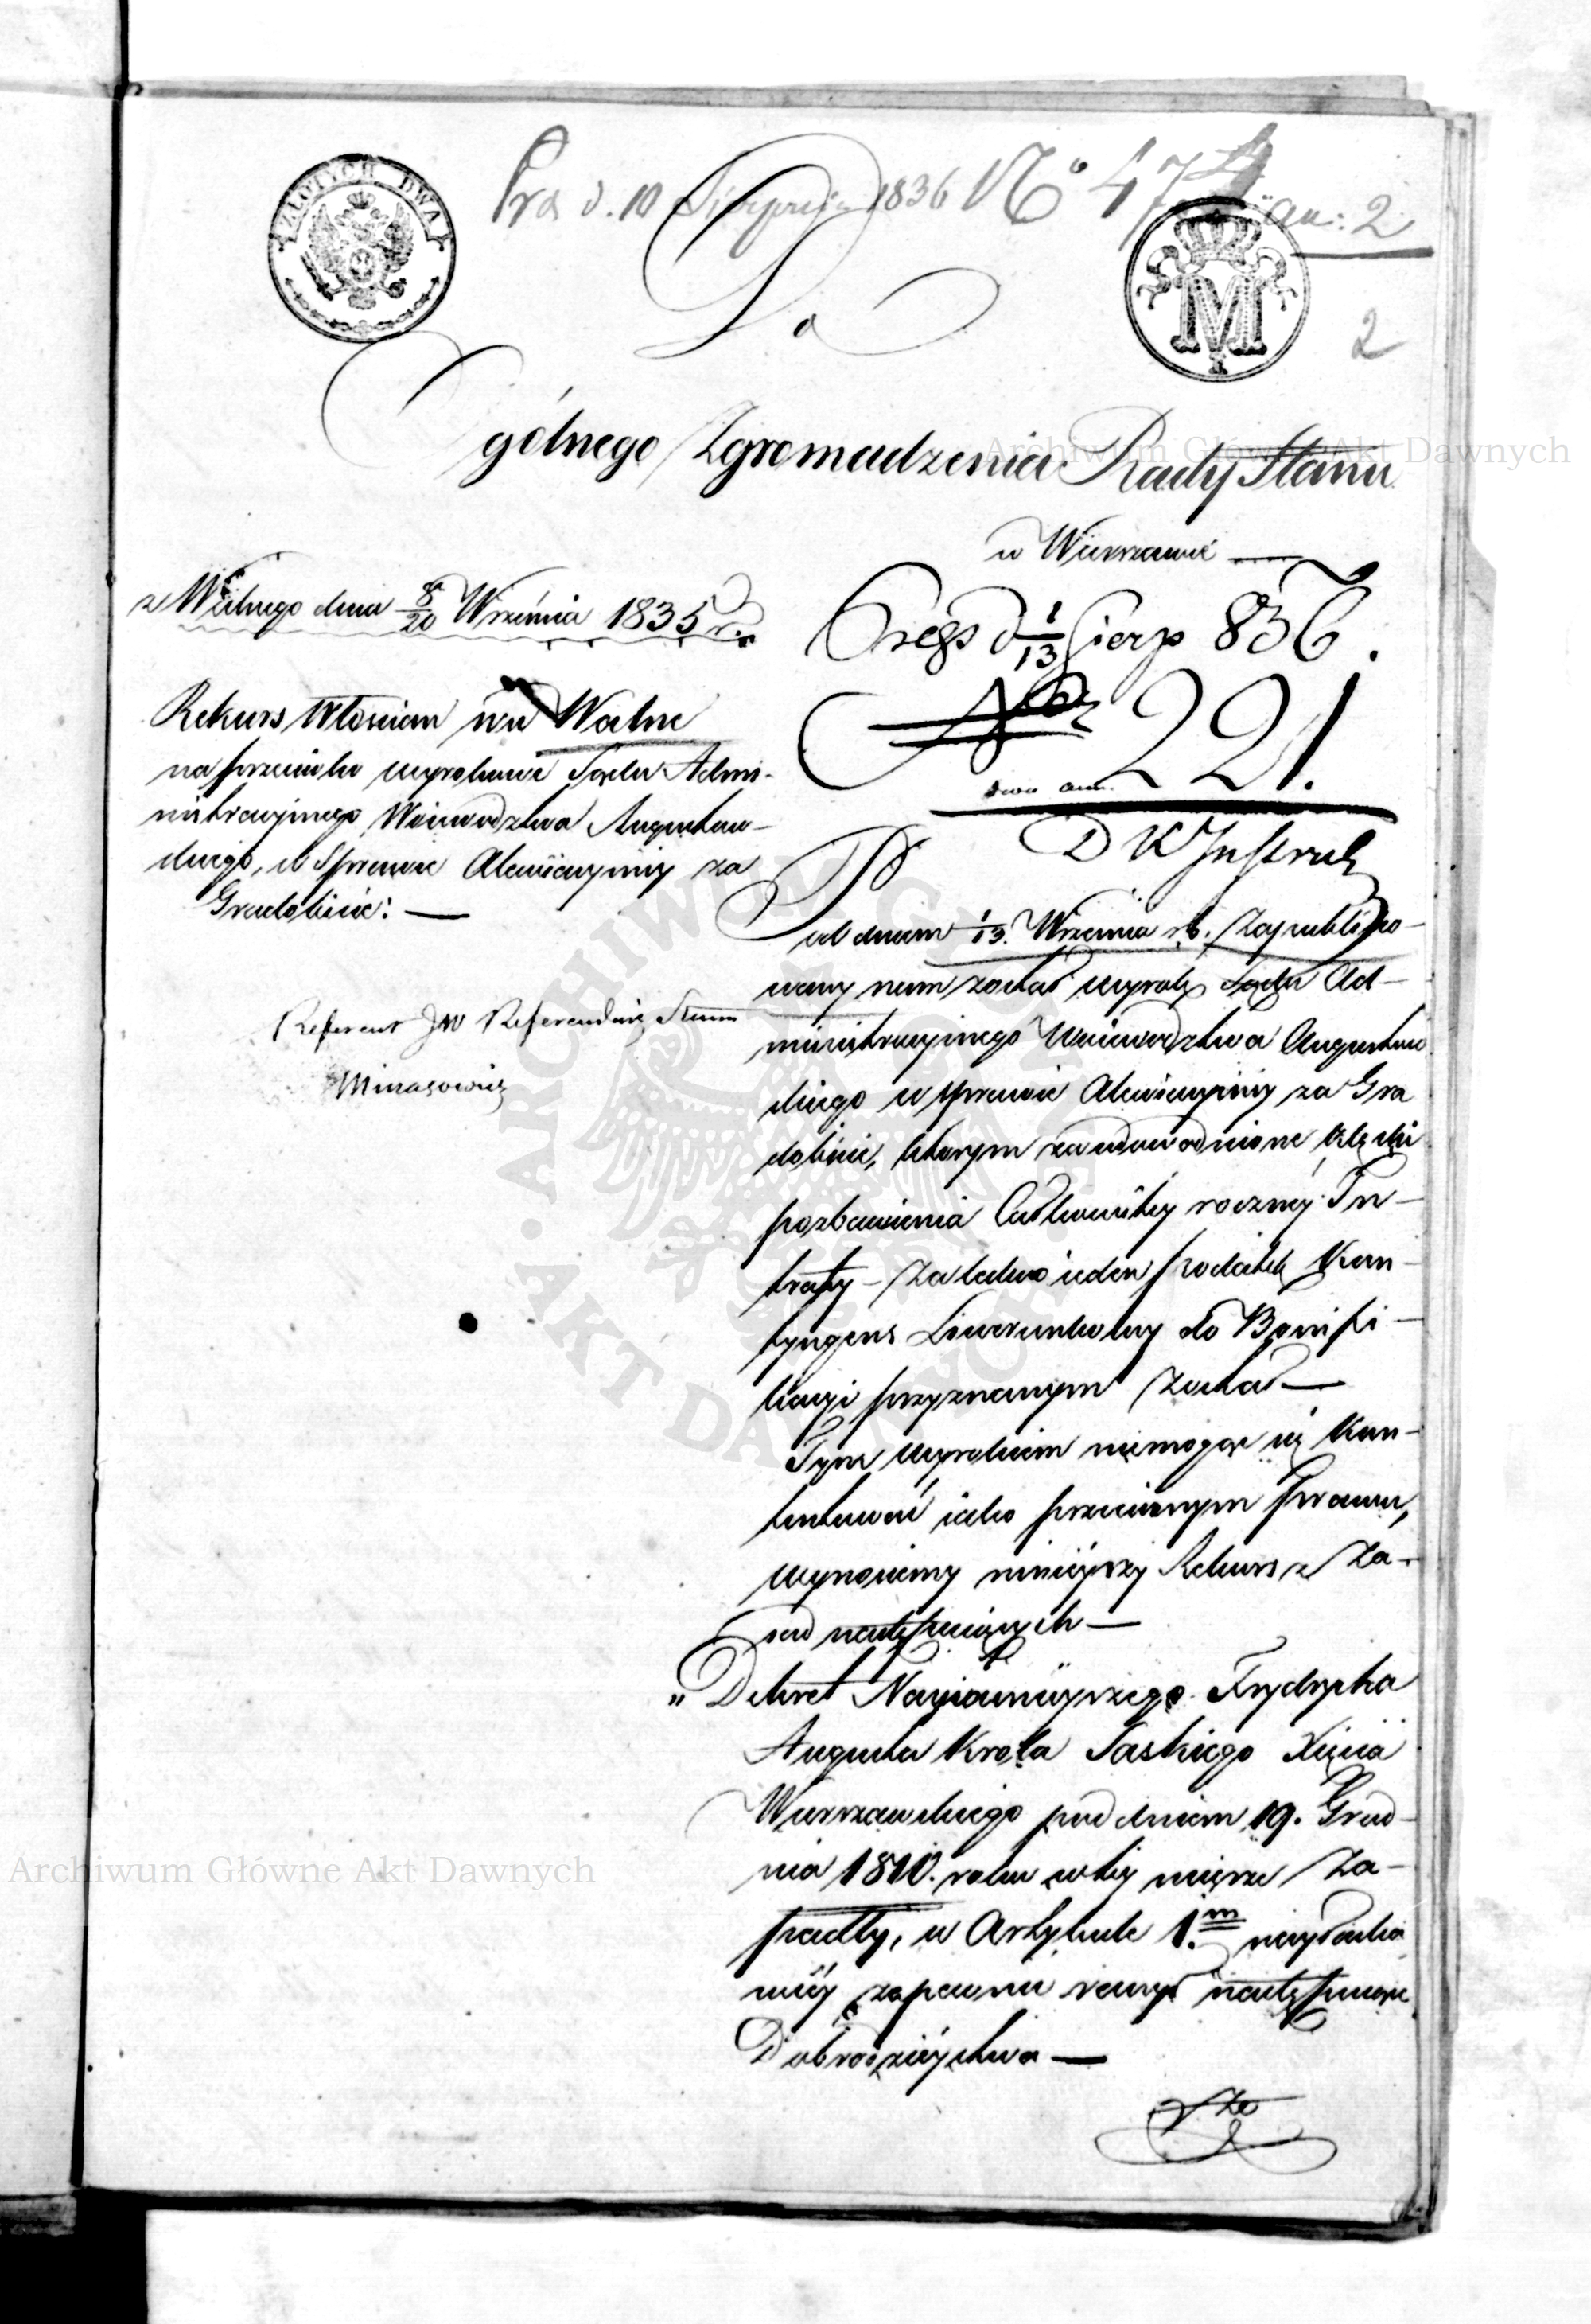 ZŁOTYCH DWA
Pras d. 10 Sierpnia 1836 No 47
an: 2
Do
2
Ogólnego Zgromadzenia Rady Stanu
w Warszawie —
z Walnego dnia 8/20 Września 1835 r.
d 1/13 Sierp 836.
No 221.
dwa an.
Rekurs Włościan wsi Walne
na przeciwko wyrokowi Sądu Admi-
nistracyjnego Woiewodztwa Augustow-
skiego, w Sprawie Alewiacyiney za
Gradobicie: —
D K Instruk
Referent JW Referendarz Stanu
Minasowicz
Pod dniem 1/13. Września r.b. Zapubliko-
wany nam został wyrok Sądu Ad-
ministracyinego Woiewodztwa Augustow
skiego w sprawie Alewiacyiney za Gra
dobicie, którym za udowodnione klęski
pozbawienia Całkowitey roczney In-
traty — Zaledwo ieden podatek Kon-
tyngens Liwerunkowy do Bonifi-
kacyi przyznanym został —
Tym wyrokiem niemogąc się kon-
tentować iako przeciwnym prawu,
wynosiemy ninieyszy Rekurs z Za-
sad następuiących —
„ Dekret Nayiaśnieyszego Frydryka
Augusta Króla Saskiego Xięcia
Warszawskiego pod dniem 19. Grud-
nia 1810. roku w tey mierze Za-
padły, w Artykule 1.m nayłaska
wiey zapewnić raczył następuiące
Dobrodzieystwa —
Archiwum Główne Akt Dawnych
Archiwum Główne Akt Dawnych
ARCHIWUM GŁÓWNE AKT DAWNYCH